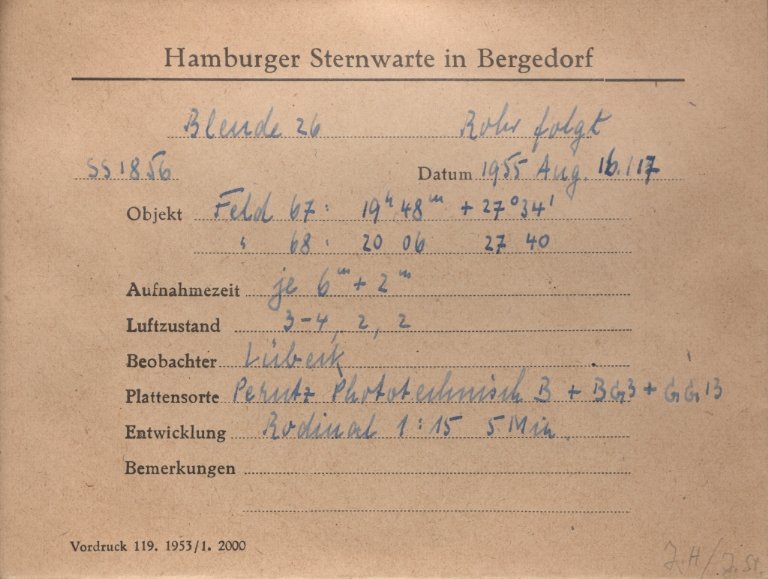 Hamburger Sternwarte in Bergedorf
Blende 26 Rohr folgt
SS 1856 Datum 1955 Aug. 16./17
Objekt Feld 67: 19h 48m + 27° 34'
" 68: 20 06 27 40
Aufnahmezeit je 6m + 2m
Luftzustand 3-4, 2, 2
Beobachter Lübeck
Plattensorte Perutz Phototechnisch B + BG3 + GG13
Entwicklung Rodinal 1:15 5 Min.
Bemerkungen
Vordruck 119. 1953/1. 2000
J.H/J.St.